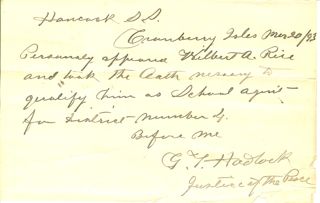 Hancock S.S.
Cranberry Isles Mar 20/93
Personally appeared Wilbert A. Rice
and took the Oath nessery to
qualify him as School agent
for District number 4.
Before me
G. T. Hadlock
Justice of the Peace